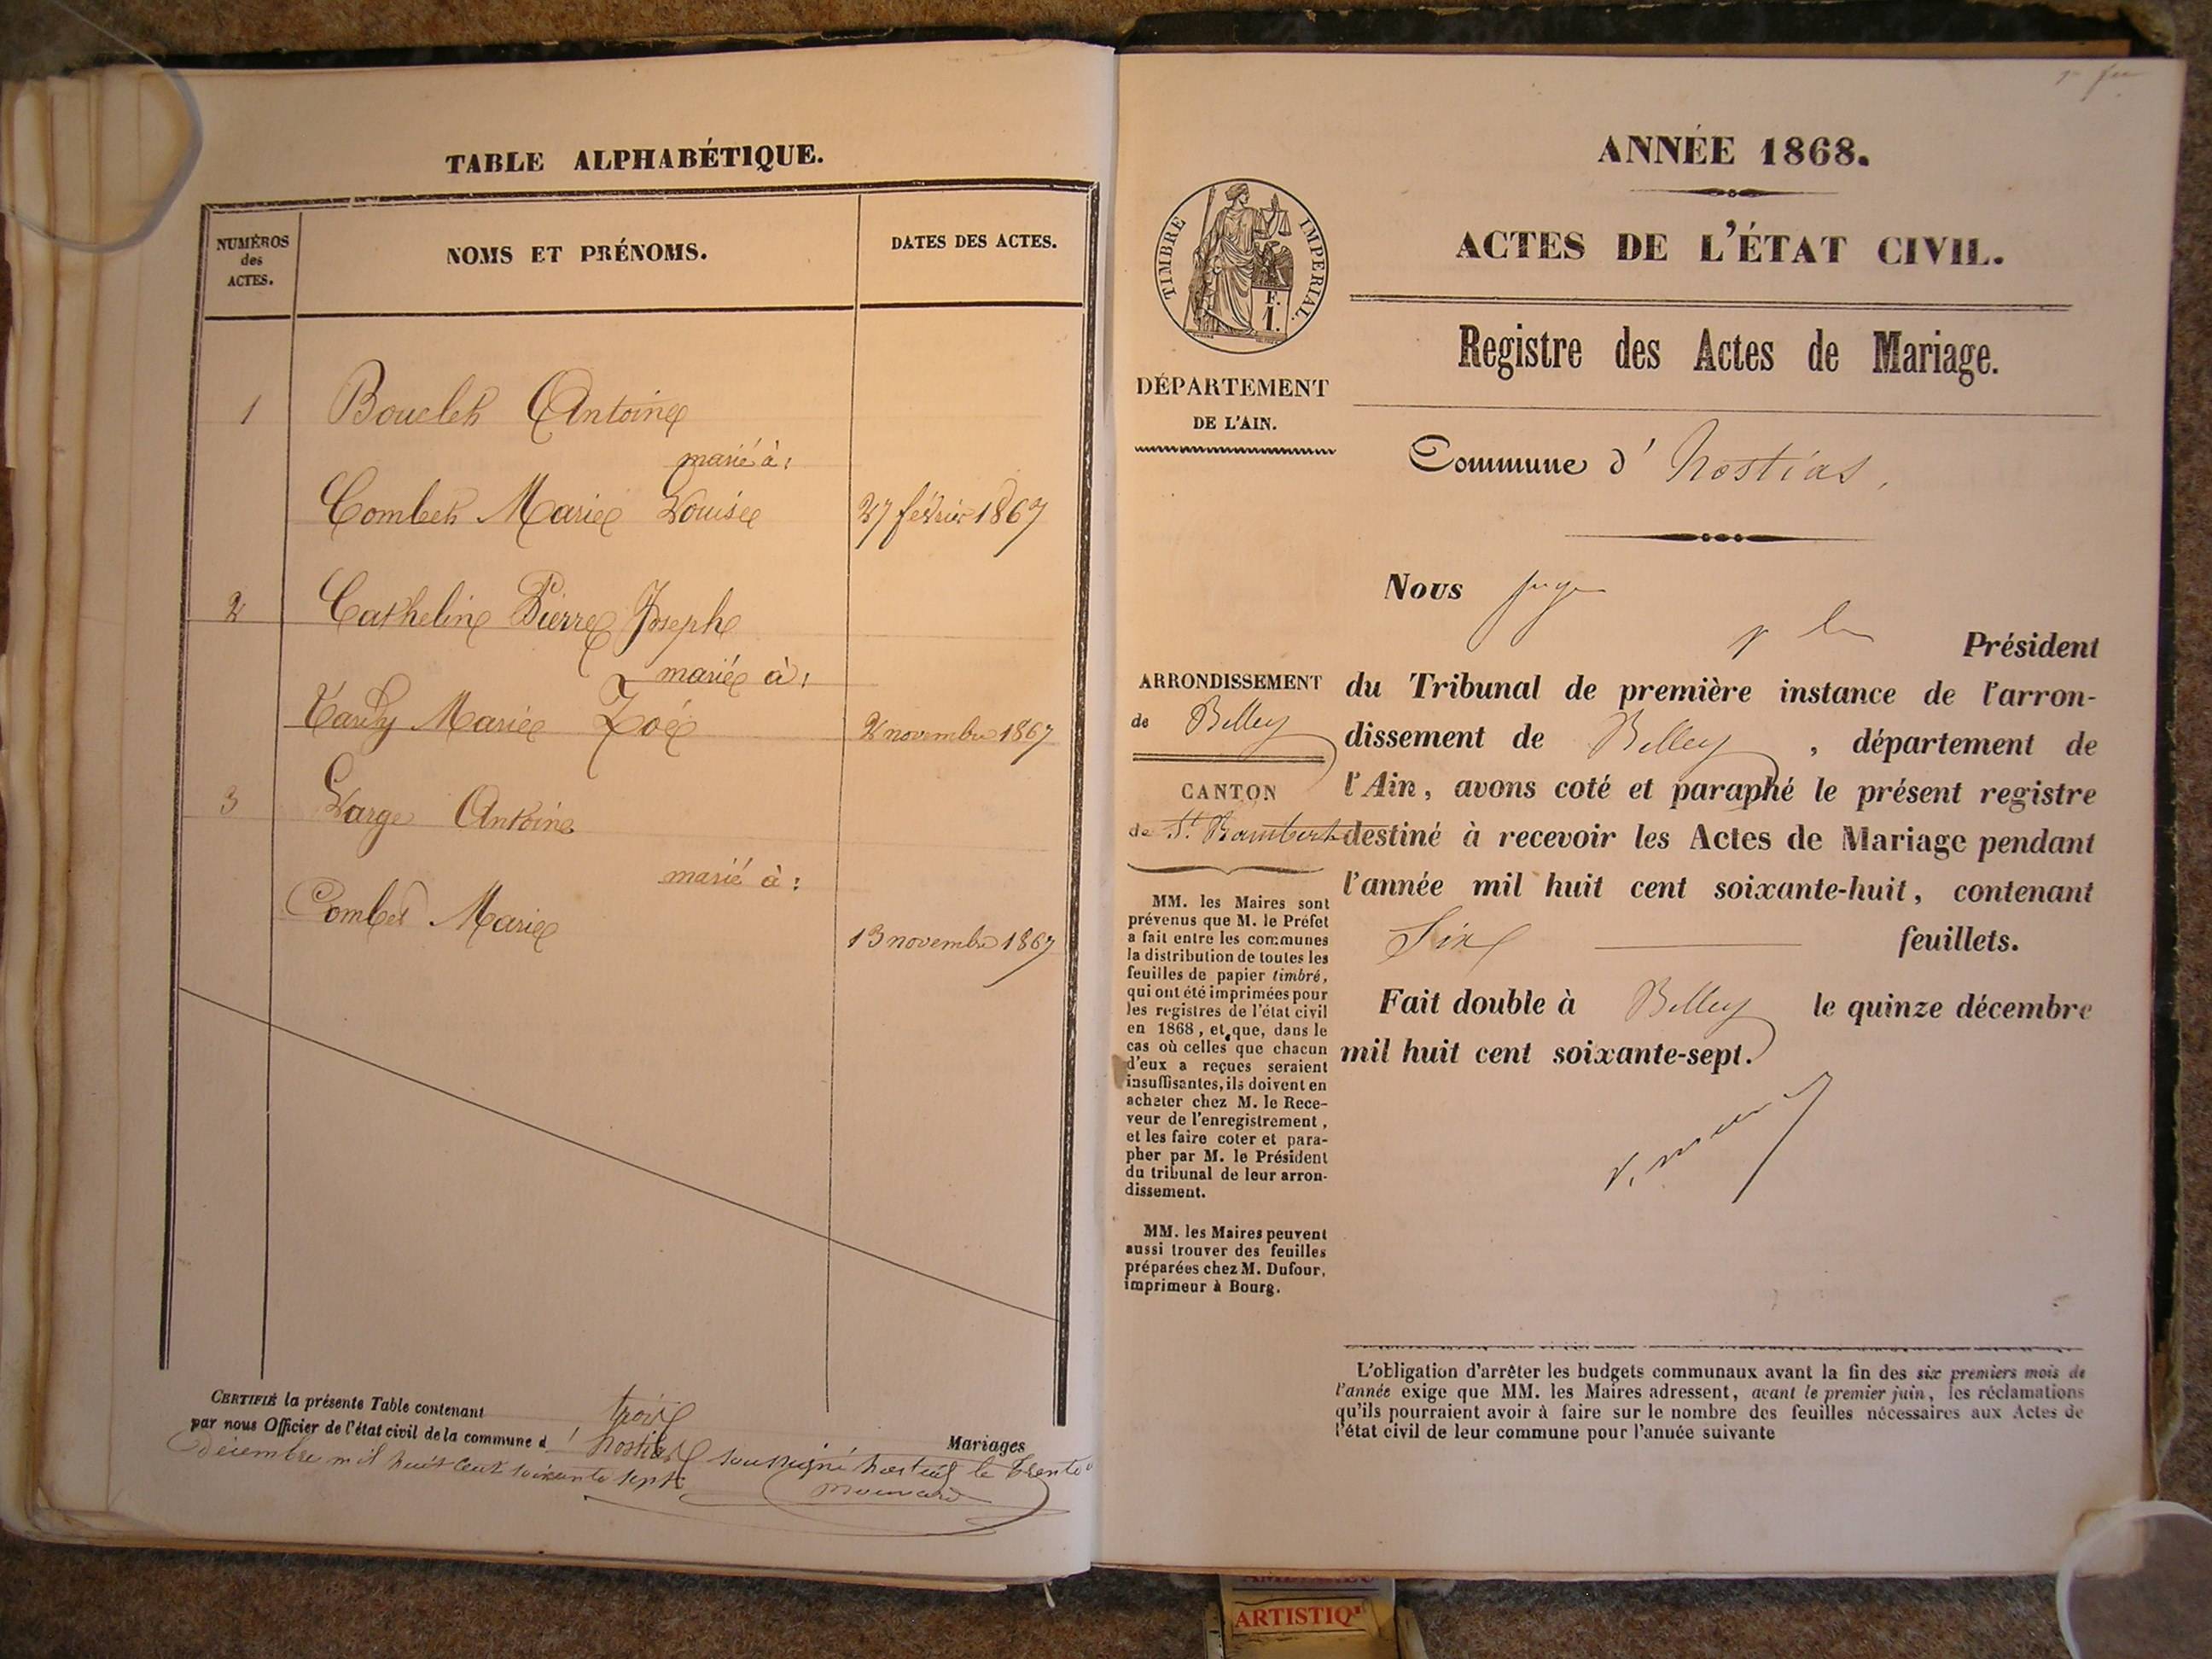 TABLE ALPHABÉTIQUE.
NUMÉROS
des
ACTES.
NOMS ET PRÉNOMS.
DATES DES ACTES.
1 Antoine
marié à:
Combet Marie Louise 27 février 1867
2 Cathelin Pierre Joseph
marié à:
Tardy Marie Zoé 2 novembre 1867
3 Large Antoine
marié à:
Combet Marie
13 novembre 1867
CERTIFIÉ la présente Table contenant trois Mariages
par nous Officier de l'état civil de la commune d' hostias soussigné hostias le trente
décembre mil huit cent soixante sept
ANNÉE 1868.
ACTES DE L'ÉTAT CIVIL.
Registre des Actes de Mariage.
TIMBRE IMPERIAL.
F.
1.
DÉPARTEMENT
DE L'AIN.
Commune d' hostias,
Nous juge
Président
du Tribunal de première instance de l'arron-
dissement de Belley, département de
l'Ain, avons coté et paraphé le présent registre
destiné à recevoir les Actes de Mariage pendant
l'année mil huit cent soixante-huit, contenant
Six feuillets.
Fait double à Belley le quinze décembre
mil huit cent soixante-sept.
ARRONDISSEMENT
de Belley
CANTON
de St. Rambert
MM. les Maires sont
prévenus que M. le Préfet
a fait entre les communes
la distribution de toutes les
feuilles de papier timbré,
qui ont été imprimées pour
les registres de l'état civil
en 1868, et que, dans le
cas où celles que chacun
d'eux a reçues seraient
insuffisantes, ils doivent en
acheter chez M. le Rece-
veur de l'enregistrement,
et les faire coter et para-
pher par M. le Président
du tribunal de leur arron-
dissement.
MM. les Maires peuvent
aussi trouver des feuilles
préparées chez M. Dufour,
imprimeur à Bourg.
L'obligation d'arrêter les budgets communaux avant la fin des six premiers mois de
l'année exige que MM. les Maires adressent, avant le premier juin, les réclamations
qu'ils pourraient avoir à faire sur le nombre des feuilles nécessaires aux Actes de
l'état civil de leur commune pour l'année suivante
ARTISTIQ